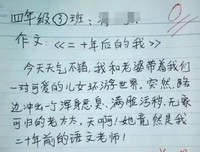 四年级③班:
作文:《二十年后的我》
今天天气不错,我和老婆带着我们
一对可爱的儿女环游世界,突然,路
边冲出一浑身恶臭、满脸污秽、无家
可归的老太太,天啊!她竟然是我
二十年前的语文老师!